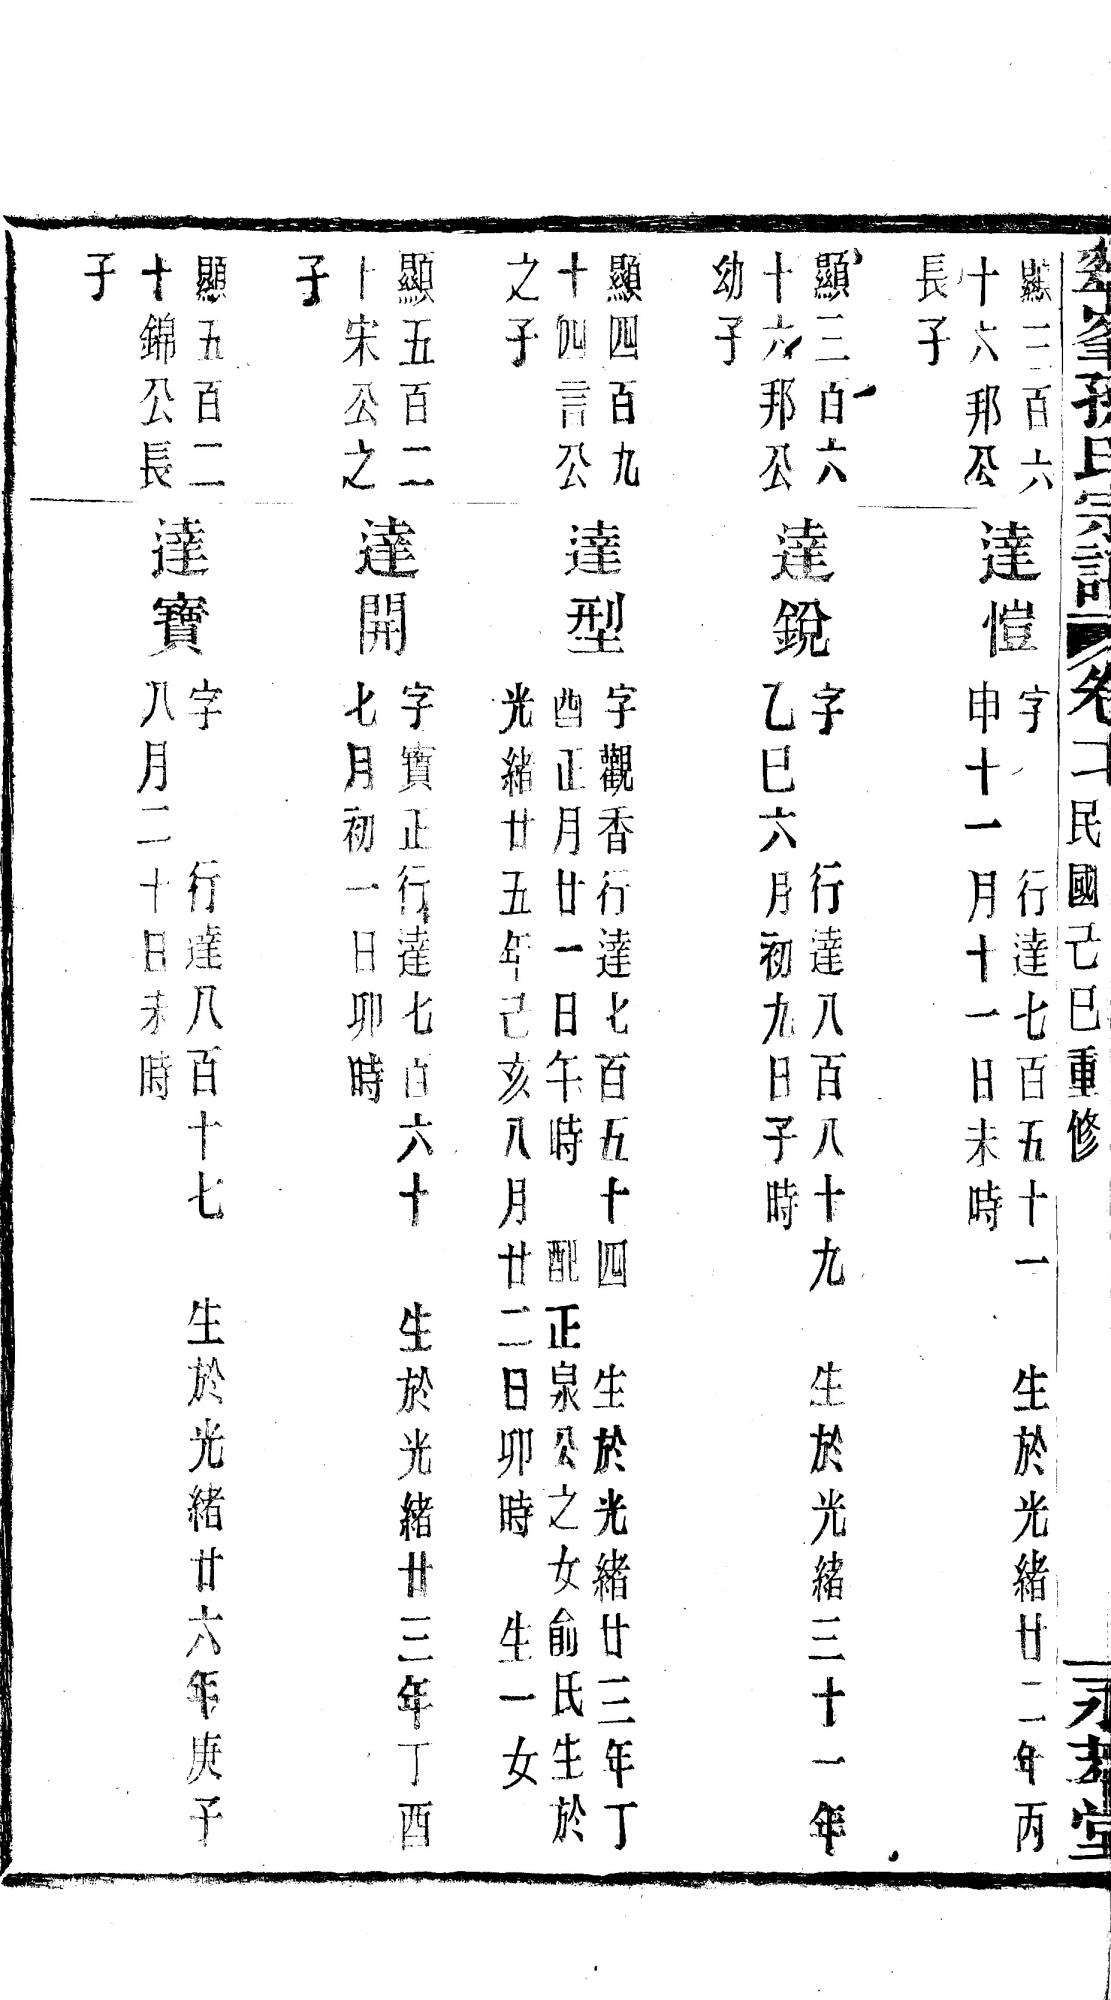 孫氏宗譜 卷十 民國己巳重修
堂
顯三百六
十六邦公
長子
達愷
字 行達七百五十一 生於光緒廿二年丙
申十一月十一日未時
顯三百六
十六邦公
幼子
達銳
字 行達八百八十九 生於光緒三十一年
乙巳六月初九日子時
顯四百九
十四言公
之子
達型
字觀香行達七百五十四 生於光緒廿三年丁
酉正月廿一日午時 配正泉公之女俞氏生於
光緒廿五年己亥八月廿二日卯時 生一女
顯五百二
十宋公之
子
達開
字寶正行達七百六十 生於光緒廿三年丁酉
七月初一日卯時
顯五百二
十錦公長
子
達寶
字 行達八百十七 生於光緒廿六年庚子
八月二十日未時